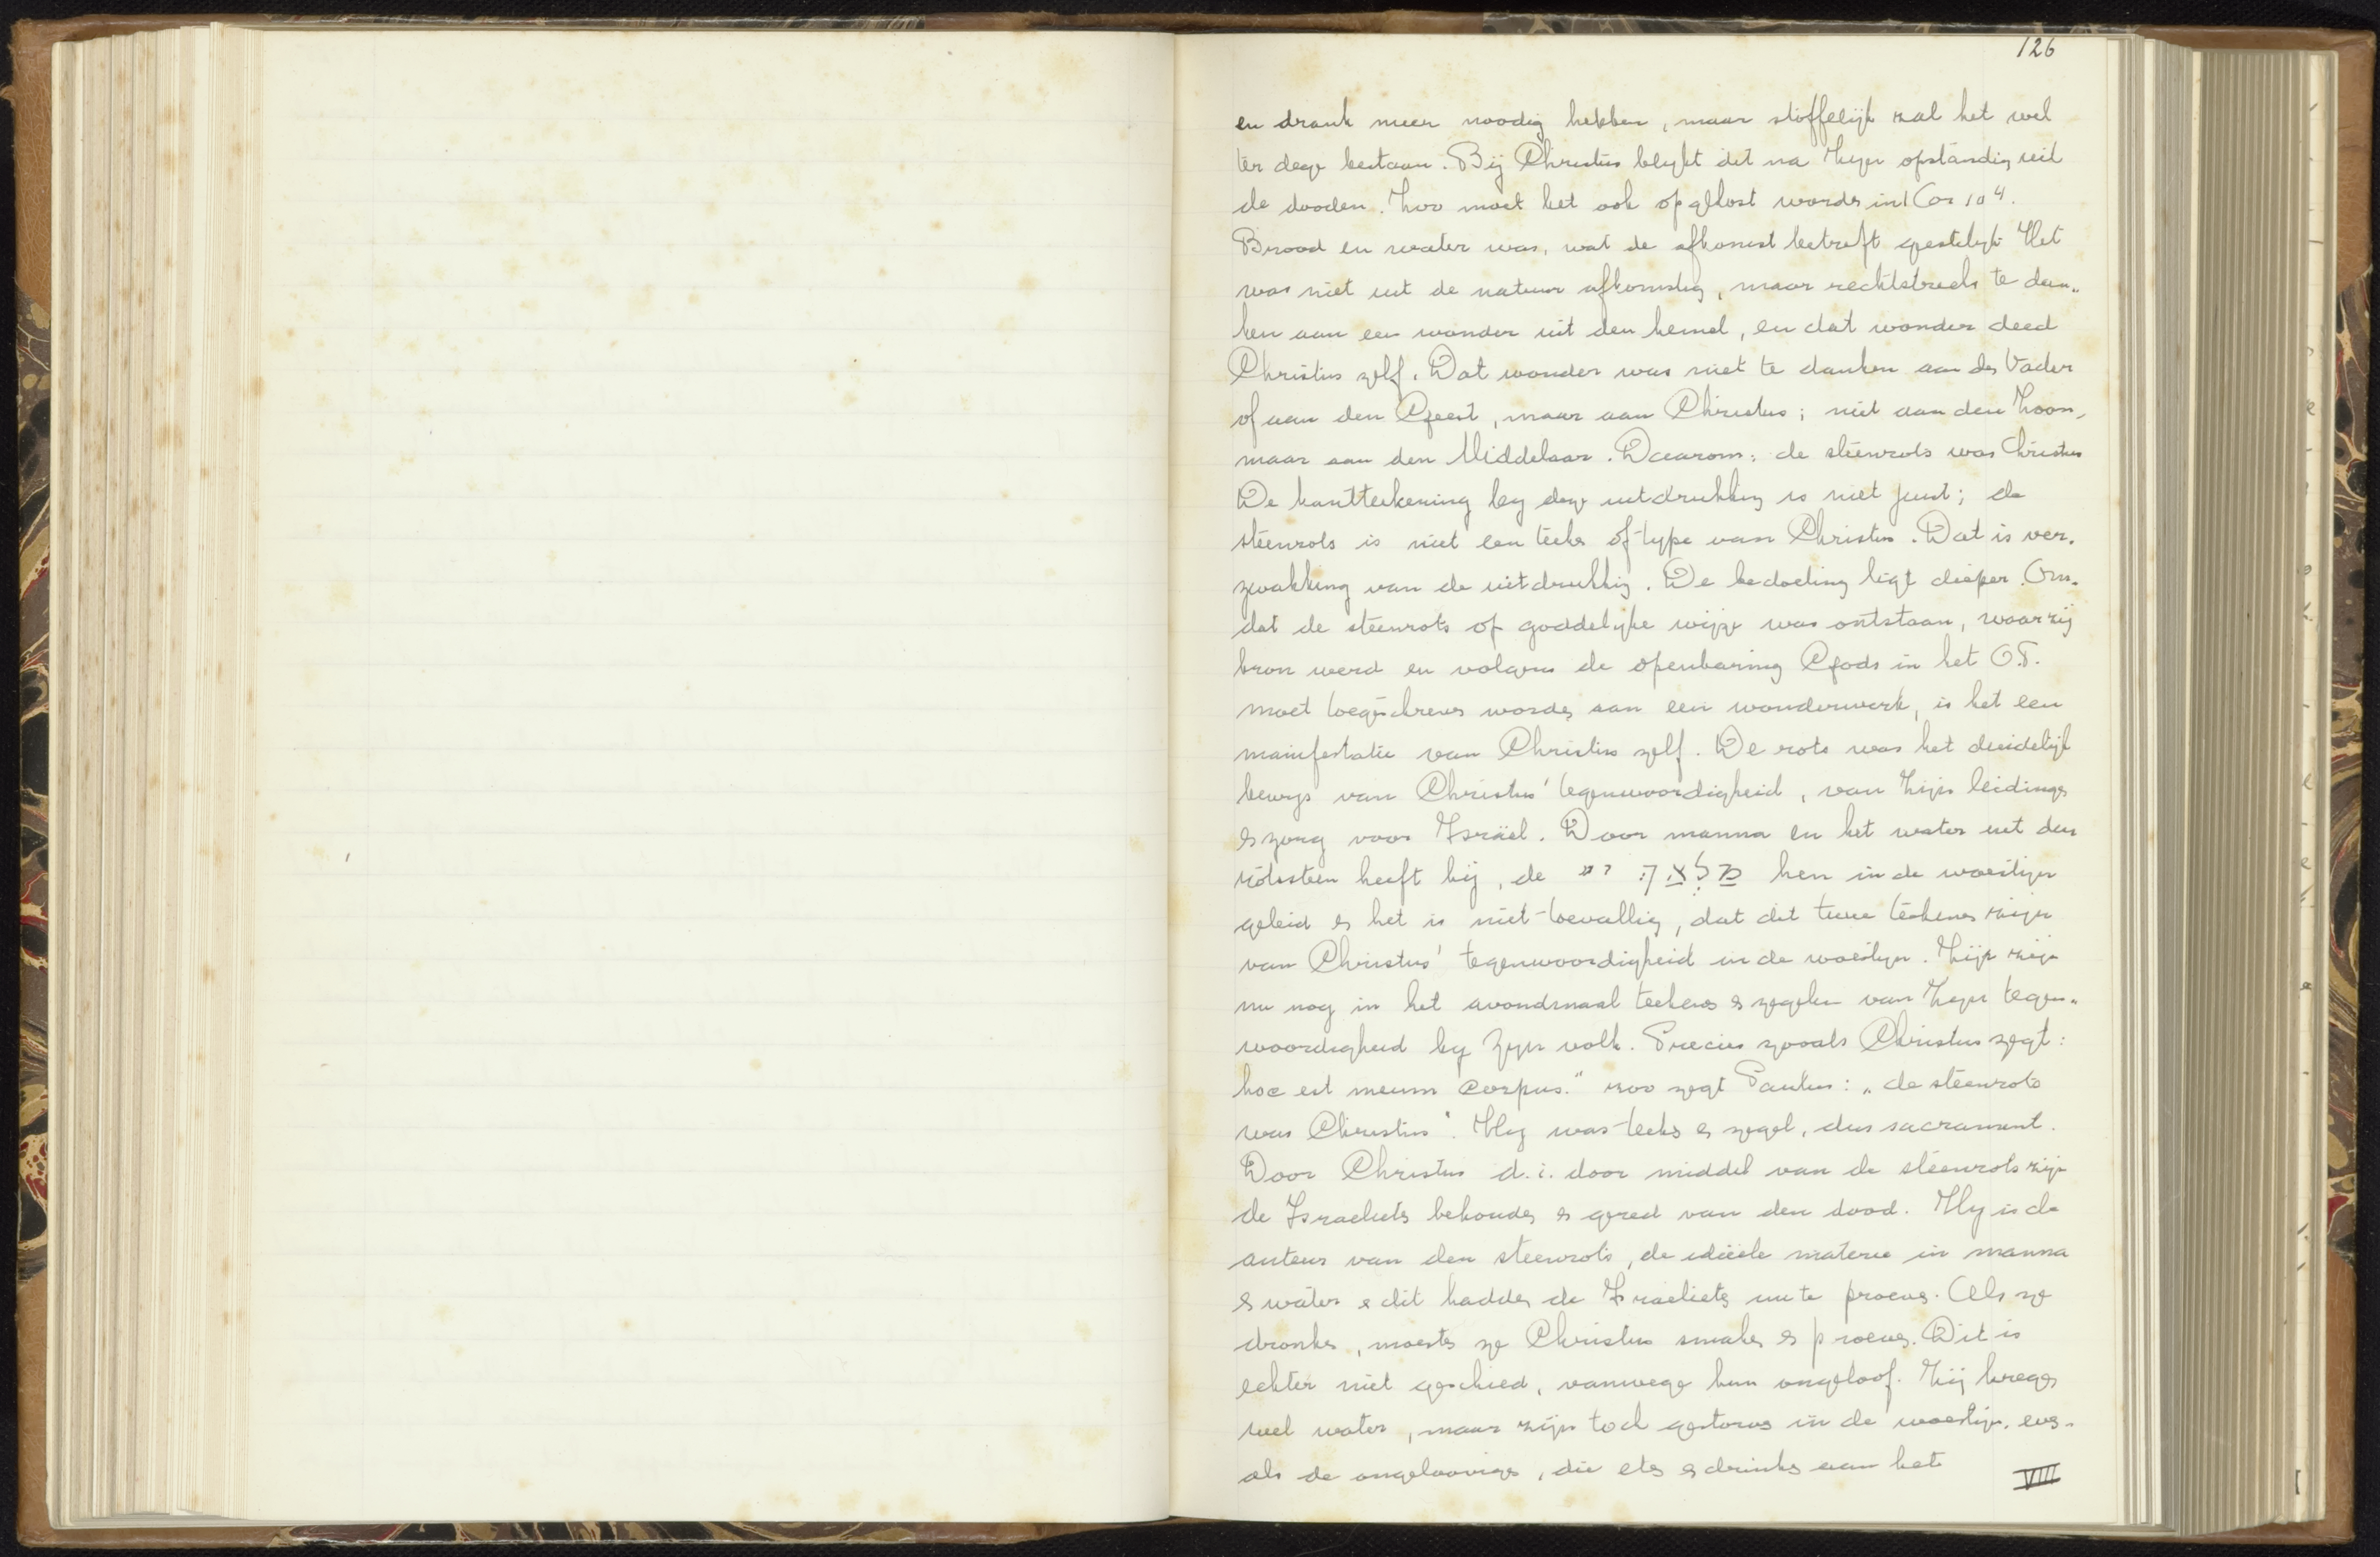 126
en drank meer noodig hebben, maar stoffelijk zal het wel
ter dege bestaan. Bij Christus blijkt dit na Zijn opstanding uit
de dooden. Zoo moet het ook opgelost worden in 1 Cor 10⁴.
Brood en water was, wat de afkomst betreft geestelijk. Het
was niet uit de natuur afkomstig, maar rechtstreeks te dan„
ken aan een wonder uit den hemel, en dat wonder deed
Christus zelf. Dat wonder was niet te danken aan den Vader
of aan den Geest, maar aan Christus; niet aan den Zoon,
maar aan den Middelaar. Daarom: de steenrots was Christus
De kantteekening bij deze uitdrukking is niet juist; de
steenrots is niet een teeken of type van Christus. Dat is ver-
zwakking van de uitdrukking. De bedoeling ligt dieper. Om-
dat de steenrots op goddelijke wijze was ontstaan, waar zij
bron werd en volgens de openbaring Gods in het O.T.
moet toegeschreven worden aan een wonderwerk, is het een
manifestatie van Christus zelf. De rots was het duidelijk
bewijs van Christus' tegenwoordigheid, van Zijn leidingen
en zorg voor Israël. Door manna en het water uit den
rotssteen heeft hij, de מלאך יי hen in de woestijn
geleid en het is niet toevallig, dat dit twee teekenen zijn
van Christus' tegenwoordigheid in de woestijn. Zij zijn
nu nog in het avondmaal teekens en zegelen van Zijn tegen„
woordigheid bij Zijn volk. Precies zooals Christus zegt:
hoc est meum corpus." zoo zegt Paulus: „de steenrots
was Christus". Hij was teeken en zegel, dus sacrament.
Door Christus d.i. door middel van de steenrots zijn
de Israelieten behouden en gered van den dood. Hij is de
auteur van den steenrots, de ideële materie in manna
en water en dit hadden de Israelieten nu te proeven. Als ze
dronken, moesten ze Christus smaken en proeven. Dit is
echter niet geschied, vanwege hun ongeloof. Zij kregen
wel water, maar zijn toch gestorven in de woestijn, even-
als de ongeloovigen, die eten en drinken aan het
VIII